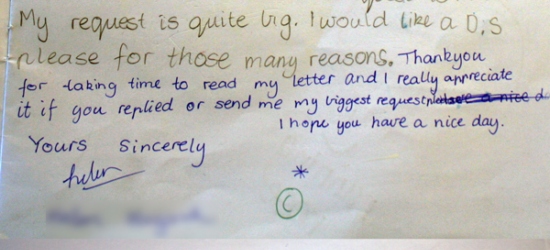 My request is quite big. I would like a D.S
please for those many reasons. Thankyou
for taking time to read my letter and I really appreciate
it if you replied or send me my biggest request
I hope you have a nice day.
Yours Sincerely
Helen
*
C